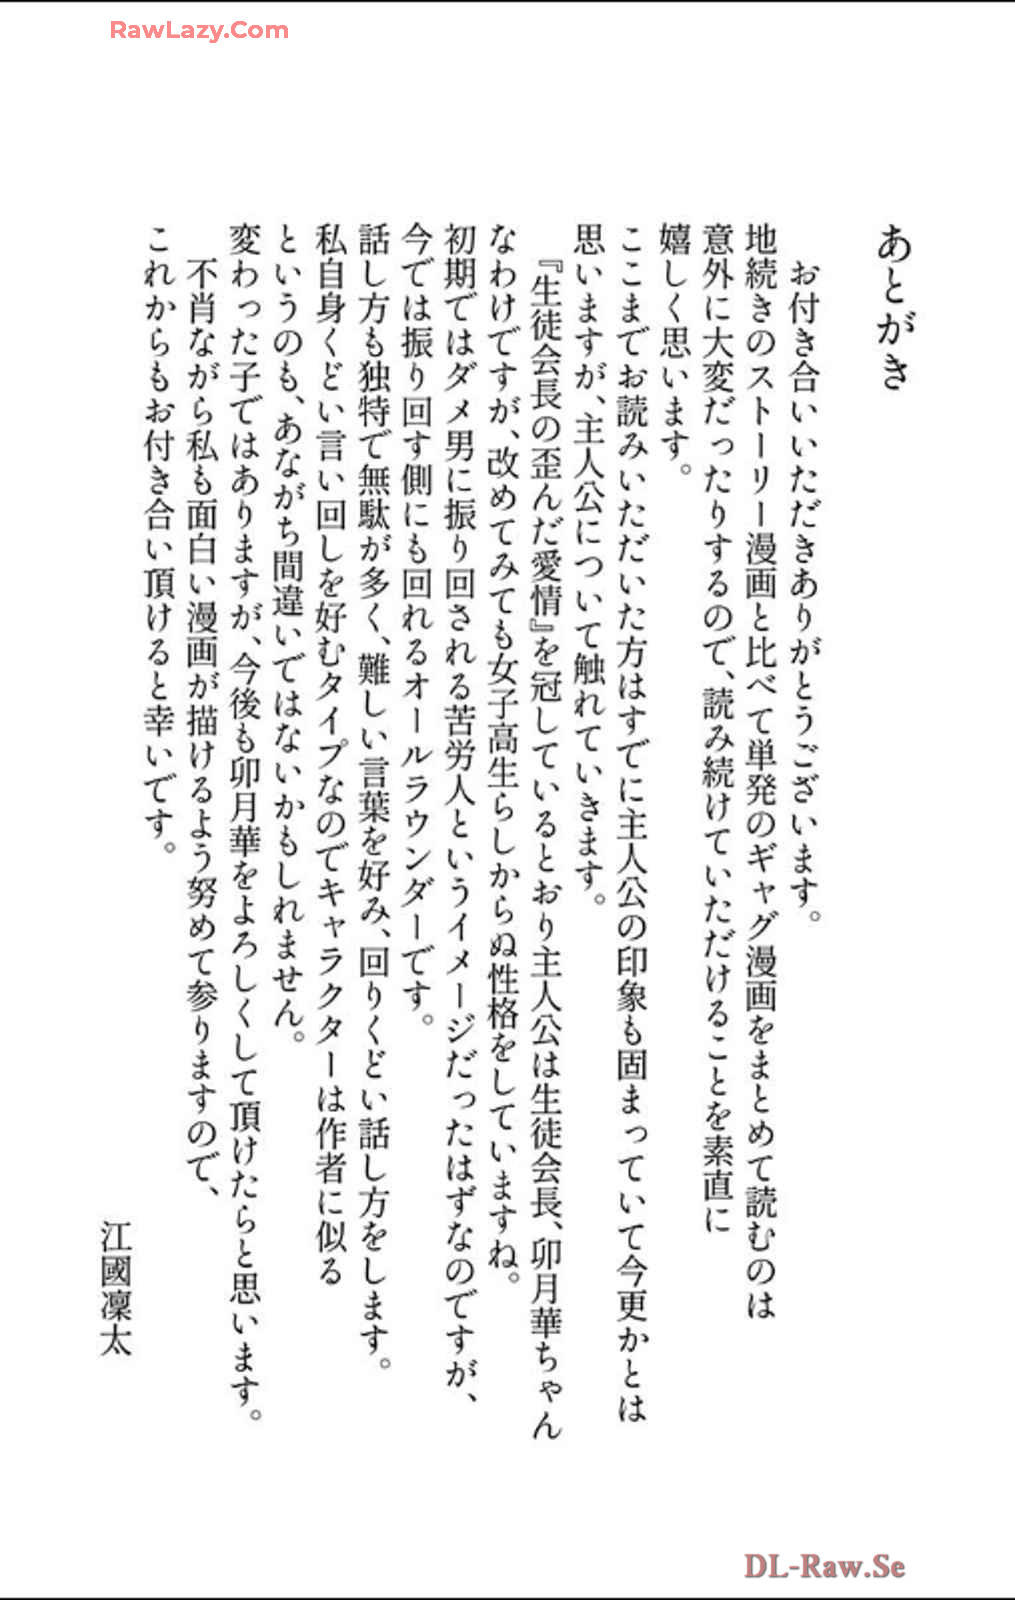 RawLazy.Com
あとがき
お付き合いいただきありがとうございます。
地続きのストーリー漫画と比べて単発のギャグ漫画をまとめて読むのは
意外に大変だったりするので、読み続けていただけることを素直に
嬉しく思います。
ここまでお読みいただいた方はすでに主人公の印象も固まっていて今更かとは
思いますが、主人公について触れていきます。
『生徒会長の歪んだ愛情』を冠しているとおり主人公は生徒会長、卯月華ちゃん
なわけですが、改めてみても女子高生らしからぬ性格をしていますね。
初期ではダメ男に振り回される苦労人というイメージだったはずなのですが、
今では振り回す側にも回れるオールラウンダーです。
話し方も独特で無駄が多く、難しい言葉を好み、回りくどい話し方をします。
私自身くどい言い回しを好むタイプなのでキャラクターは作者に似る
というのも、あながち間違いではないかもしれません。
変わった子ではありますが、今後も卯月華をよろしくして頂けたらと思います。
不肖ながら私も面白い漫画が描けるよう努めて参りますので、
これからもお付き合い頂けると幸いです。
江國凜太
DL-Raw.Se